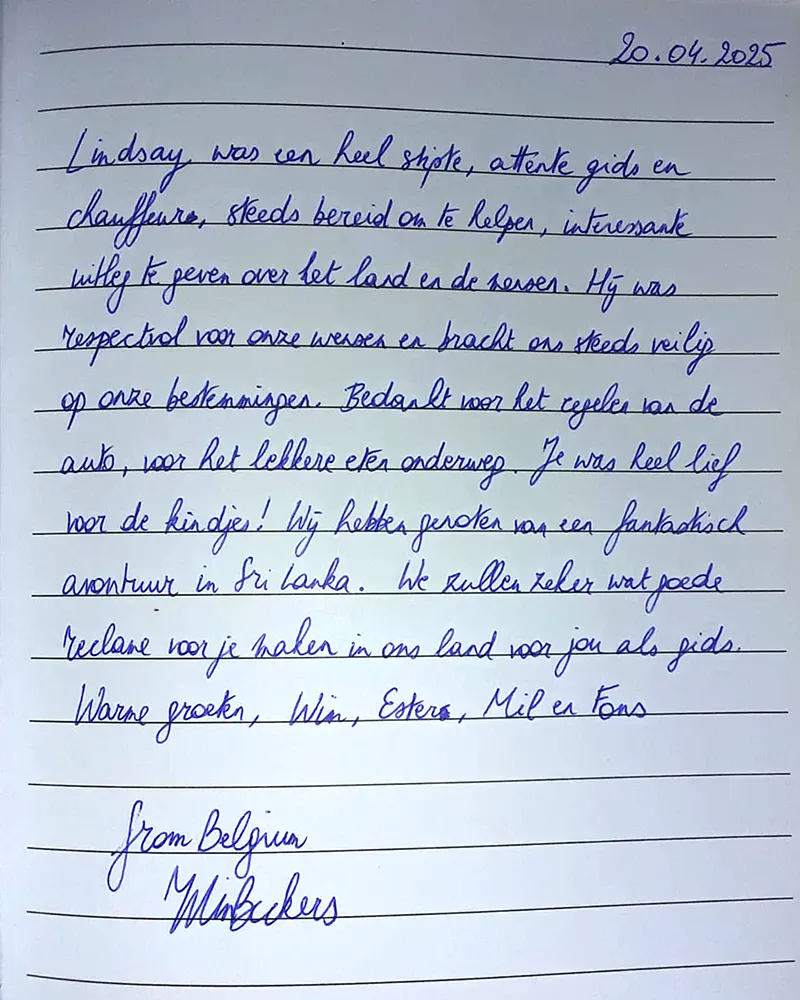 20.04.2025
Lindsay was een heel stipte, attente gids en
chauffeur, steeds bereid om te helpen, interessante
uitleg te geven over het land en de mensen. Hij was
respectvol voor onze wensen en bracht ons steeds veilig
op onze bestemmingen. Bedankt voor het regelen van de
auto, voor het lekkere eten onderweg. Je was heel lief
voor de kindjes! Wij hebben genoten van een fantastisch
avontuur in Sri Lanka. We zullen zeker wat goede
reclame voor je maken in ons land voor jou als gids.
Warme groeten, Wim, Ester, Mil en Fons
from Belgium
Wim Beckers